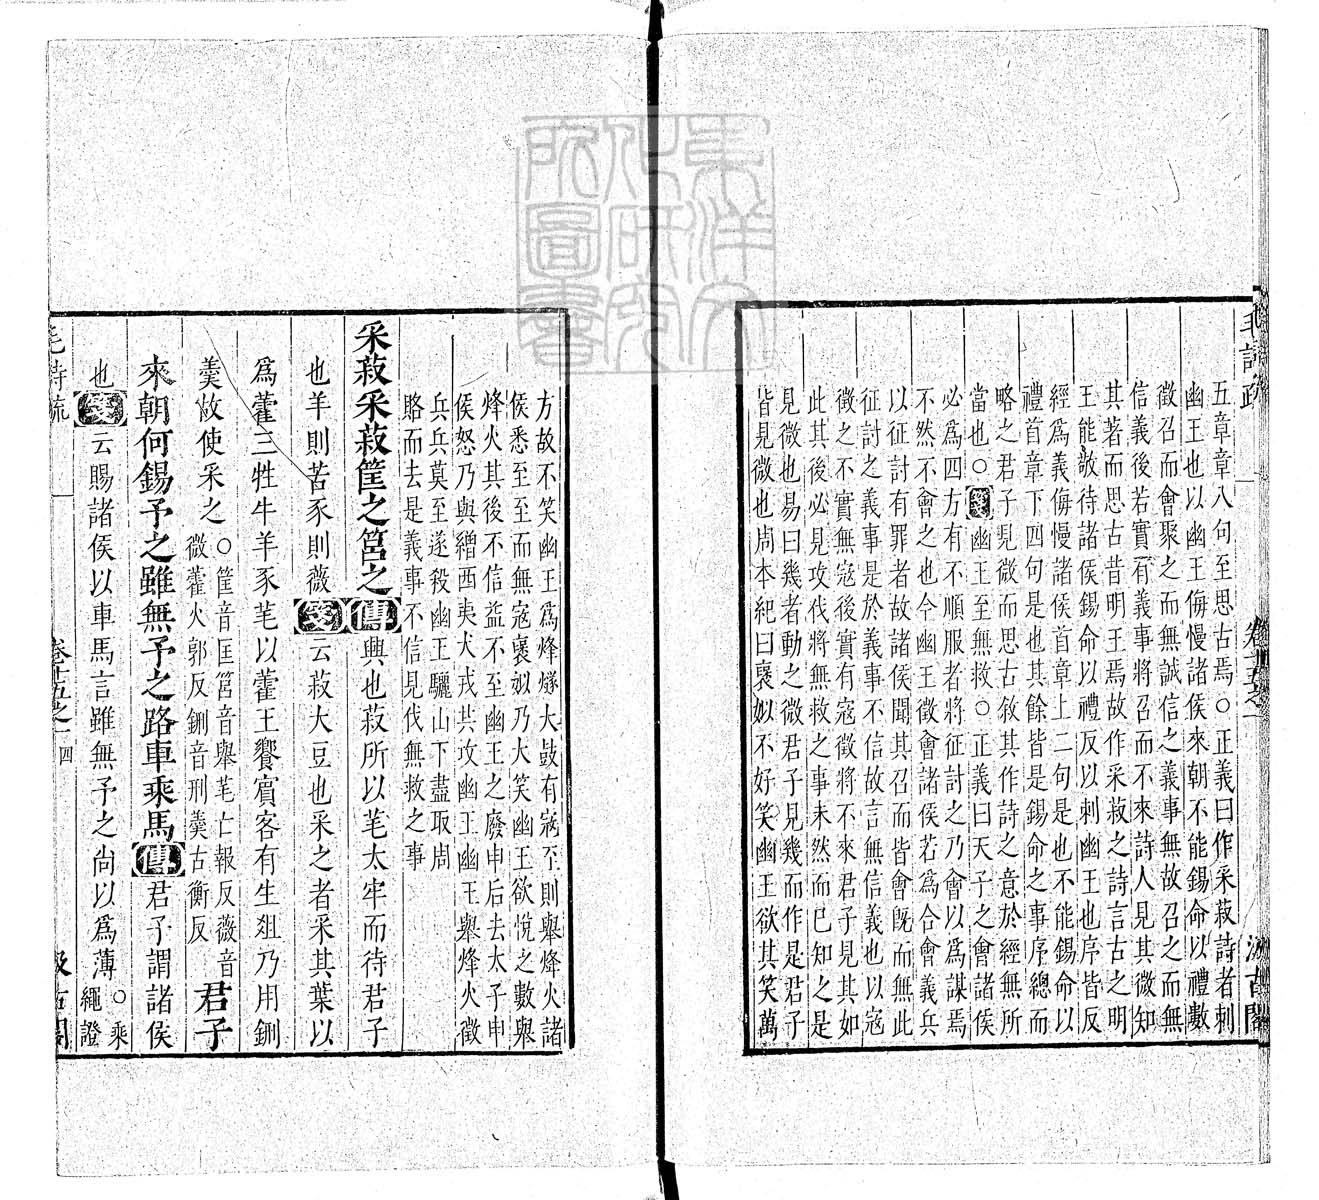 毛詩疏
卷十五之一
汲古閣
五章章八句至思古焉○正義曰作采菽詩者刺
幽王也以幽王侮慢諸侯來朝不能錫命以禮數
徵召而會聚之而無誠信之義事無故召之而無
信義後若實有義事將召而不來詩人見其微知
其著而思古昔明王焉故作采菽之詩言古之明
王能敬待諸侯錫命以禮反以刺幽王也序皆反
經爲義侮慢諸侯首章上二句是也不能錫命以
禮首章下四句是也其餘皆是錫命之事序總而
略之君子見微而思古敘其作詩之意於經無所
當也○箋幽王至無救○正義曰天子之會諸侯
必爲四方有不順服者將征討之乃會以爲謀焉
不然不會之也今幽王徵會諸侯若爲合會義兵
以征討有罪者故諸侯聞其召而皆會既而無此
征討之義事是於義事不信故言無信義也以寇
徵之不實無寇後實有寇徵將不來君子見其如
此其後必見攻伐將無救之事未然而已知之是
見微也易曰幾者動之微君子見幾而作是君子
皆見微也周本紀曰襃姒不好笑幽王欲其笑萬
方故不笑幽王爲烽燧大鼓有寇至則舉烽火諸
侯悉至至而無寇襃姒乃大笑幽王欲悅之數舉
烽火其後不信益不至幽王之廢申后去太子申
侯怒乃與繒西夷犬戎共攻幽王幽王舉烽火徵
兵兵莫至遂殺幽王驪山下盡取周
賂而去是義事不信見伐無救之事
采菽采菽筐之筥之傳興也菽所以芼太牢而待君子
也羊則苦豕則薇箋云菽大豆也采之者采其葉以
爲藿三牲牛羊豕芼以藿王饗賓客有生俎乃用鉶
羹故使采之○筐音匡筥音舉芼亡報反薇音
微藿火郭反鉶音刑羹古衡反君子
來朝何錫予之雖無予之路車乘馬傳君子謂諸侯
也箋云賜諸侯以車馬言雖無予之尚以爲薄○乘
繩證
毛詩疏
卷十五之一
四
汲古閣
東洋文化研究所圖書